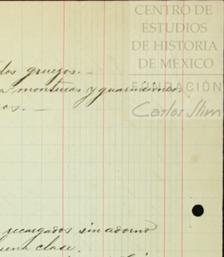 CENTRO DE
ESTUDIOS
DE HISTORIA
DE MEXICO
FUNDACIÓN
Carlos Slim
dos gruesos.—
a monturas y guarniciones
os.—
recargados sin adorno
buena clase.